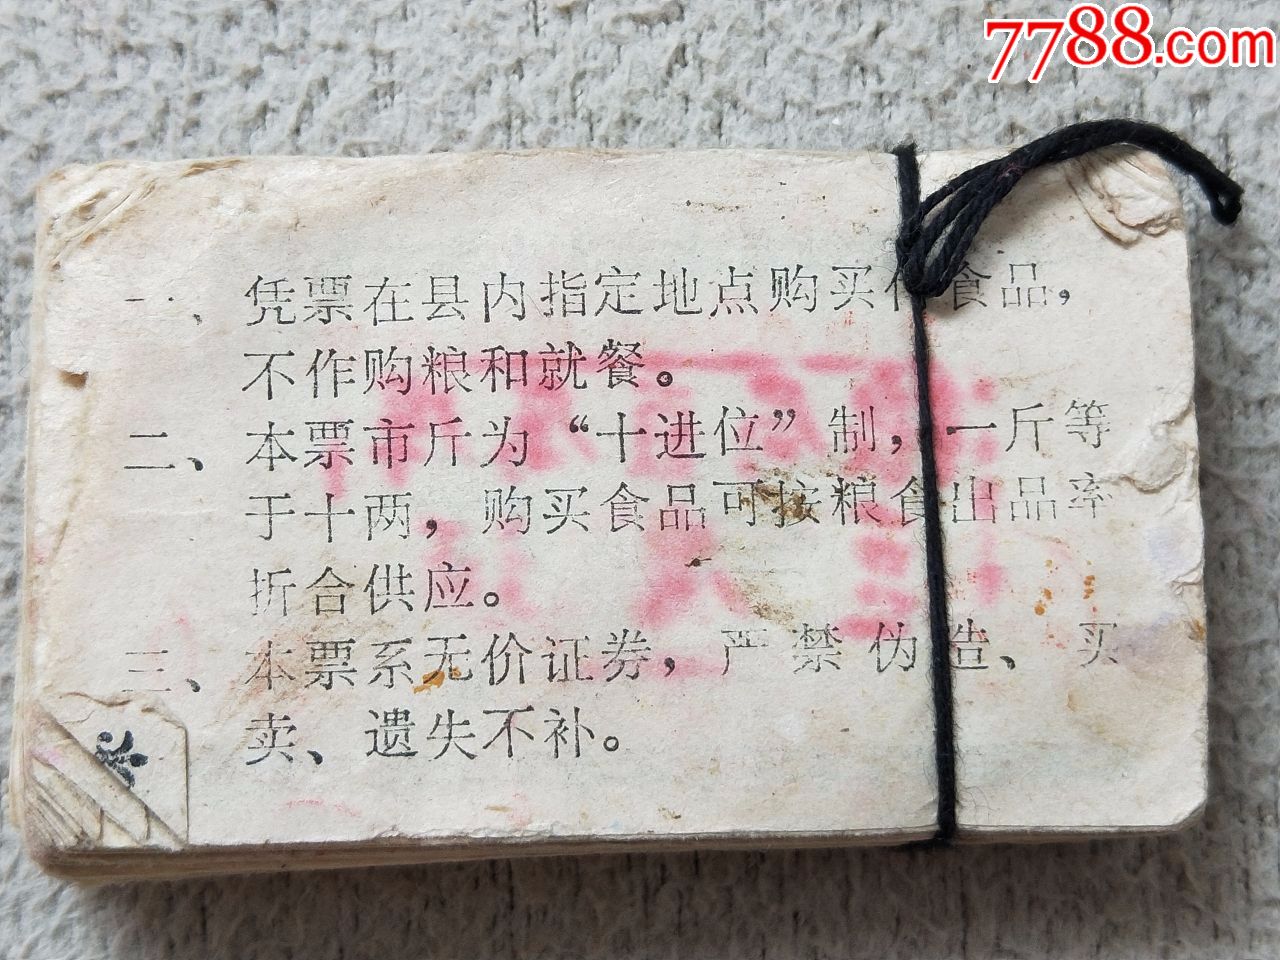 7788.com
一、凭票在县内指定地点购买代食品,
不作购粮和就餐。
二、本票市斤为“十进位”制, 一斤等
于十两, 购买食品可按粮食出品率
折合供应。
三、本票系无价证券, 严禁伪造、买
卖、遗失不补。